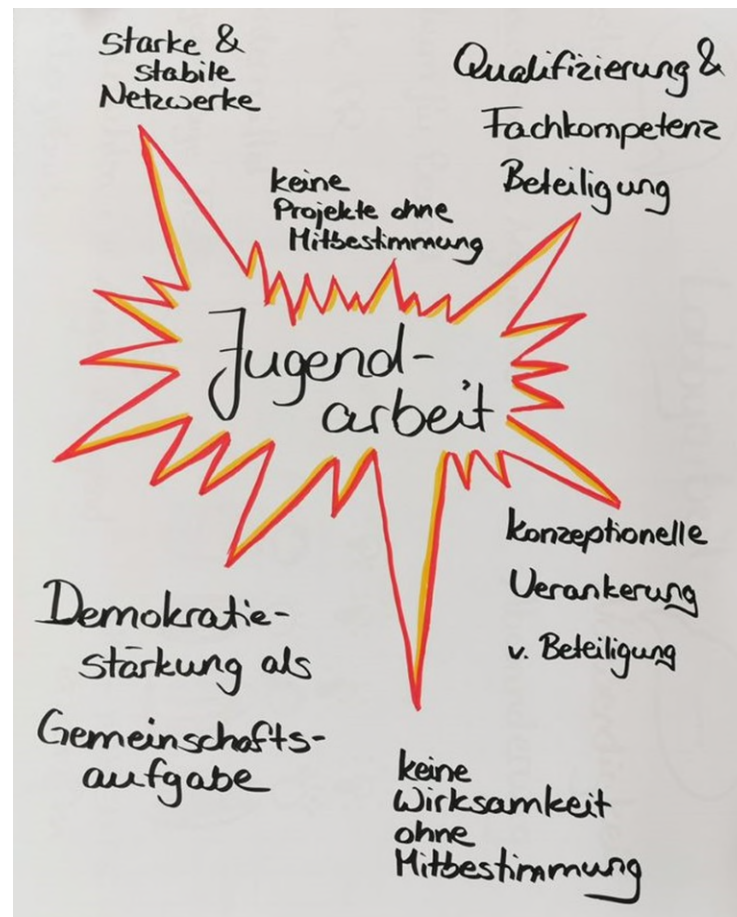 Starke &
stabile
Netzwerke
Qualifizierung &
Fachkompetenz
Beteiligung
keine
Projekte ohne
Mitbestimmung
Jugend-
arbeit
konzeptionelle
Verankerung
v. Beteiligung
Demokratie-
stärkung als
Gemeinschafts-
aufgabe
keine
Wirksamkeit
ohne
Mitbestimmung